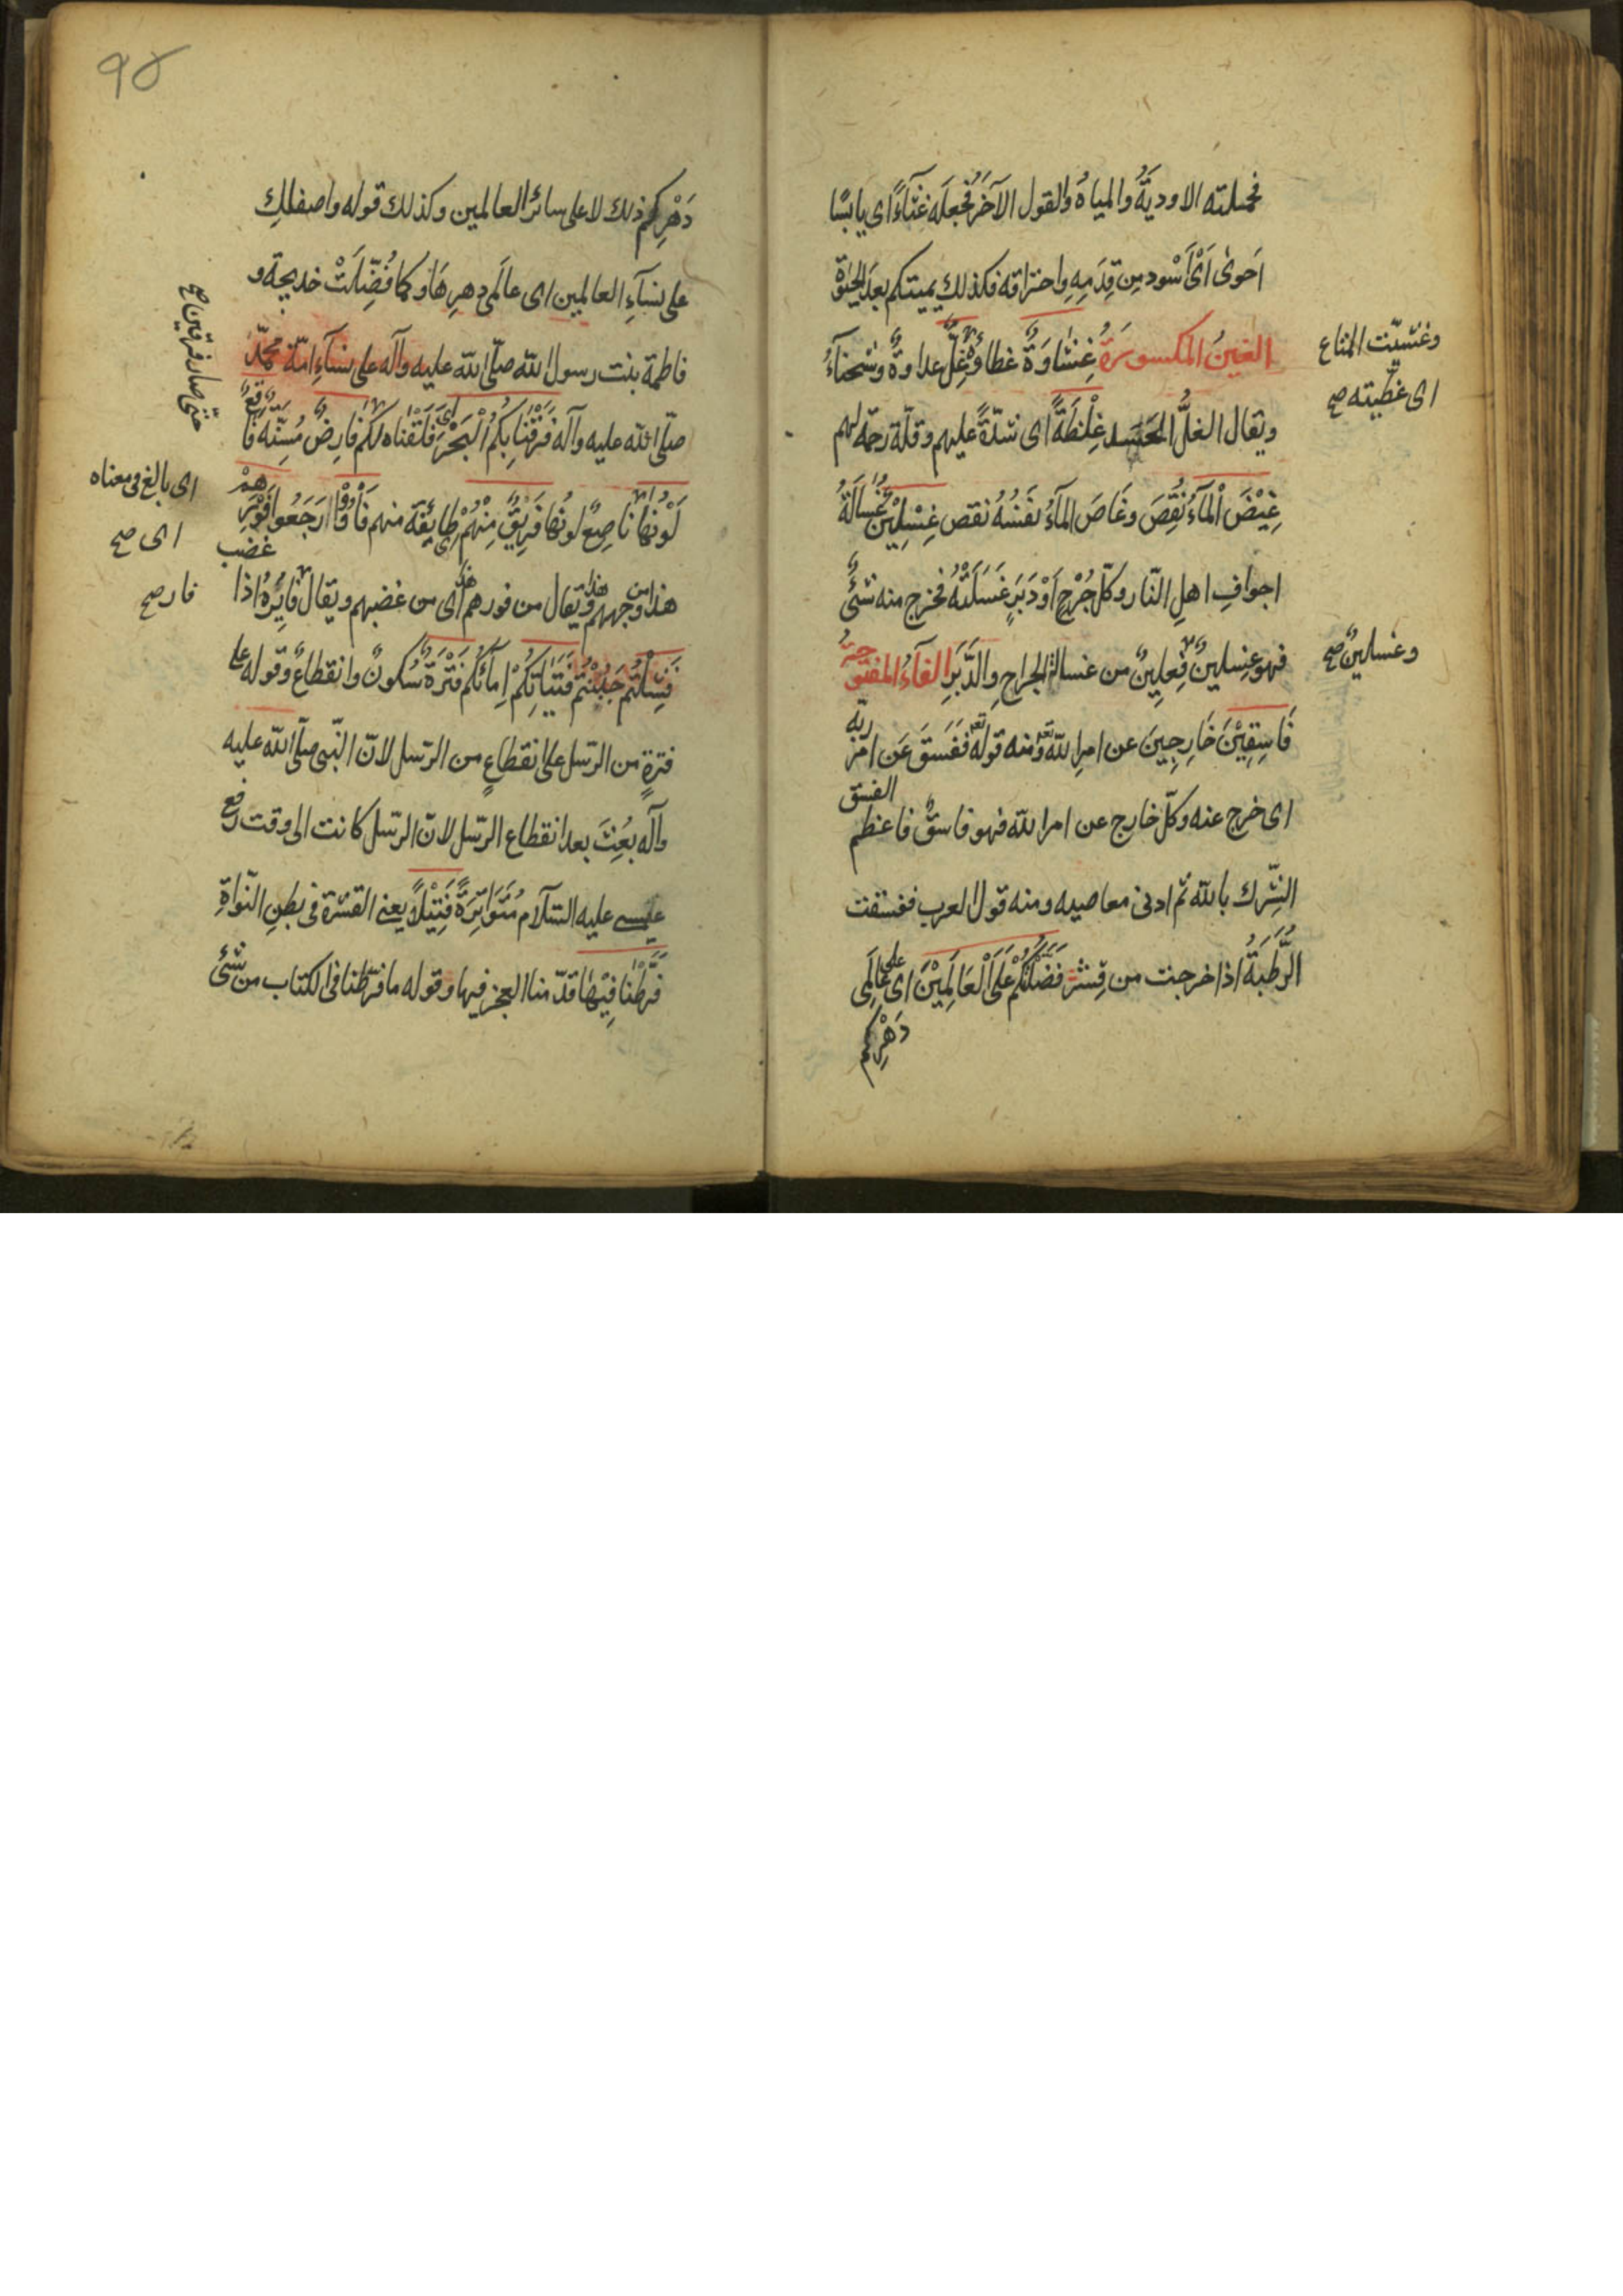 فحملته الاوديَةُ والمياهُ والقول الآخَرُ فَجعلَه غُثَآءً اى يابسًا
اَحوىٰ اَىْ اَسْود مِن قِدَمِهِ واحتراقه فكذلك يميتكم بعدَ الحيٰوة
الغينُ المكسورَةُ غِشَاوَةٌ غطاءٌ وغِلٌّ عداوةٌ وشحنآءُ
وغشّيت المتاع
اى غطّيته صح
ويقال الغلُّ الحسد غِلْظَةً اى شدّةً عليهم وقلّة رحمة لهم
غِيْضَ الْمَآءُ نُقِصَ وغَاصَ المآءُ نفسُهُ نقص غِسْلِيْن غُسَالَةُ
اجوافِ اهلِ النّار وكلّ جُرْحٍ اَوْ دَبَرٍ غَسَلْتَهُ فخرج منه شئٌ
فهو غسلينٌ فِعلِينٌ من غسالة الجراحِ والدَّبَرِ الفآءُ المفتوحةُ
وغسلينٌ صح
فَاسِقِيْنَ خَارِجِينَ عن امرِ الله تع ومنه قوله تع فَفَسَقَ عَن امْرِ ربّه
اى خرج عنه وكلّ خارج عن امر الله فهو فاسقٌ فاعظم الفسق
الشِّرك بالله ثم ادنى معاصيه ومنه قول العرب ففسقت
الرُّطَبَةُ اذا خرجت من قِشْر فَضَّلْتُكُمْ عَلَى الْعَالَمِيْنَ اى على عَالَمِى
دَهْرِكم
٩٥
دَهْرِكم ذلك لا على سائر العالمين وكذلك قوله واصفاكِ
على نسآءِ العالمين اى عالَمى دهرِهَا وكما فُضِّلَتْ خديجة و
فاطمة بنت رسول الله صلّى الله عليه وآله على نسآءِ امّة محمّد
صلّى الله عليه وآله فَرَقْنَا بِكُمُ الْبَحْرَ اى فلَقْناه لكم فارِضٌ مُسِنّة فَاقِعٌ
حتّى صار فرقين صح
لَوْنُهَا ناصِعٌ لونُها فَرِيقٌ مِنْهُمْ طايفة منهم فَآؤُا رَجَعُوا فَوْرِهِمْ
اى بالغ فى معناه
اى صح
هذا من وجههم هذا ويقال من فورهم هذا اى من غضبهم ويقال فَايِرُهُ اذا غضب
فار صح
فَشِلْتُمْ جَبُنْتُم فَتَيَاتِكُمْ اِمآئِكُم فَتْرَةٌ سُكونٌ وانقطاعٌ وقوله على
فترةٍ من الرّسل على انقطاعٍ من الرّسل لانّ النّبى صلّى الله عليه
وآله بُعِثَ بعد انقطاع الرّسل لانّ الرّسل كانت الى وقت رفع
عيسى عليه السّلام مُتَوَاتِرَةً فَتِيْلًا يعنى القشرة فى بطنِ النّواةِ
فَرَّطْنَا فِيْهَا قدّمنا العجز فيها وقوله ما فرّطنا فى الكتاب من شئ